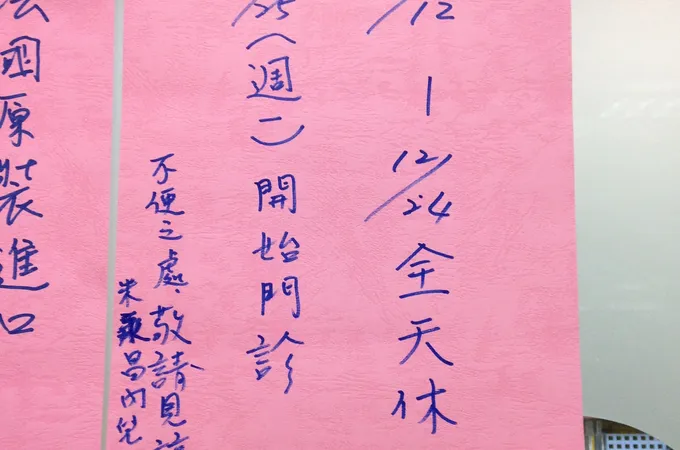 /12 — 12/24 全天休
/25(週二)開始門診
不便之處,敬請見諒
昌內兒
法國原裝進口